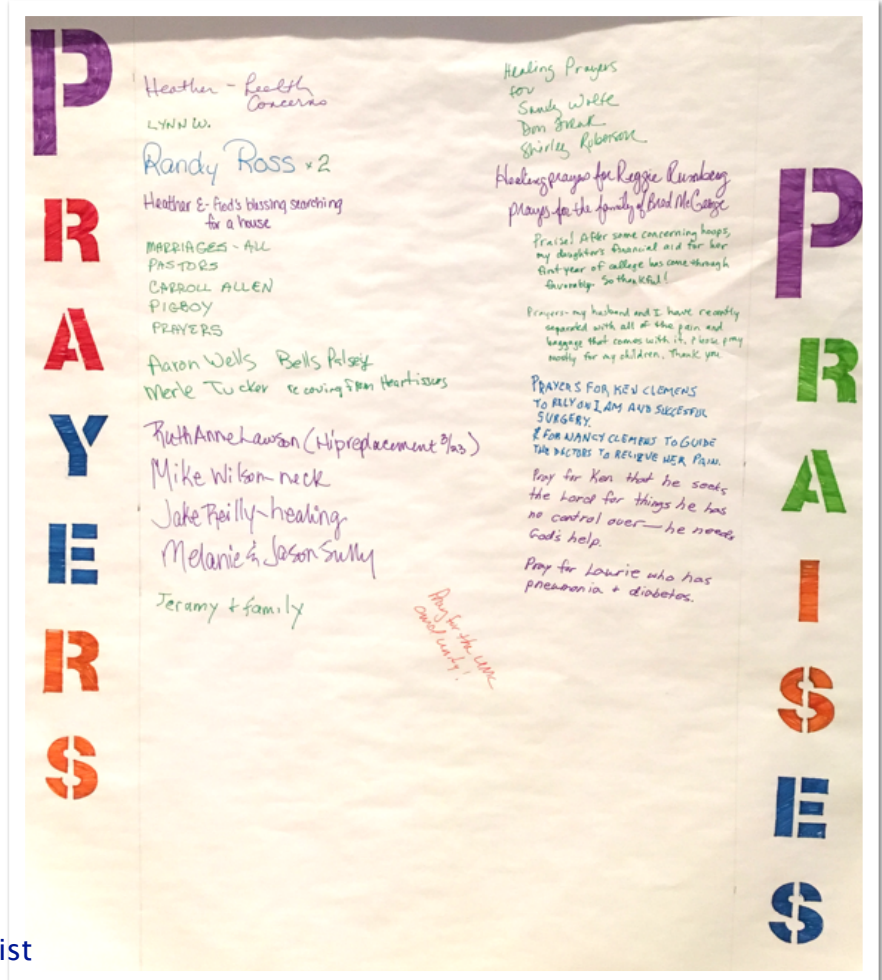 PRAYERS
Heather - Health
Concerns
LYNN W.
Randy Ross x 2
Heather E - God's blessing searching
for a house
MARRIAGES - ALL
PASTORS
CARROLL ALLEN
PIGBOY
PRAYERS
Aaron Wells Bells Palsey
Merle Tucker recoving from Heart issues
Ruth Anne Lawson (Hip replacement 3/23)
Mike Wilson - neck
Jake Reilly - healing
Melanie & Jason Sully
Jeramy + family
Pray for the UMC
and unity!
Healing Prayers
for
Sandy Wolfe
Don
Shirley Roberson
Healing prayes for Reggie
prayes for the family of Brad McGeorge
Praise! After some concerning hoops,
my daughter's financial aid for her
first year of college has come through
favorably. So thankful!
Prayers - my husband and I have recently
separated with all of the pain and
baggage that comes with it. Please pray
mostly for my children. Thank you
PRAYERS FOR KEN CLEMENS
TO RELY ON I AM AND SUCCESFUL
SURGERY.
& FOR NANCY CLEMENS TO GUIDE
THE DOCTORS TO RELIEVE HER PAIN.
Pray for Ken that he seeks
the Lord for things he has
no control over — he needs
God's help.
Pray for Laurie who has
pneumonia + diabetes.
PRAISES
ist